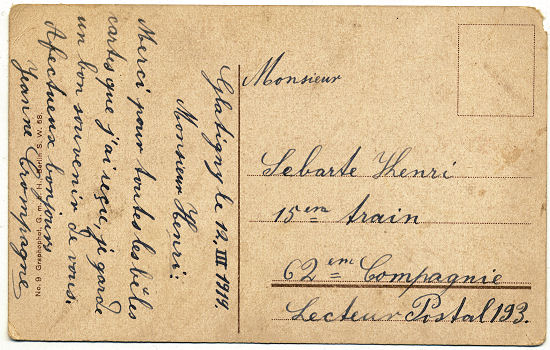 Glatigny le 12. III 1919.
Monsieur Henri:
Merci pour toutes les bèles
cartes que j'ai reçue, je garde
un bon souvenir de vous.
Afectueux bonjours
Jeanne Crompagne
No. 9 Graphophot, G. m. b. H., Berlin S. W. 68.
Monsieur
Lebarte Henri
15 eme train
62 eme Compagnie
Lecteur Postal 193.